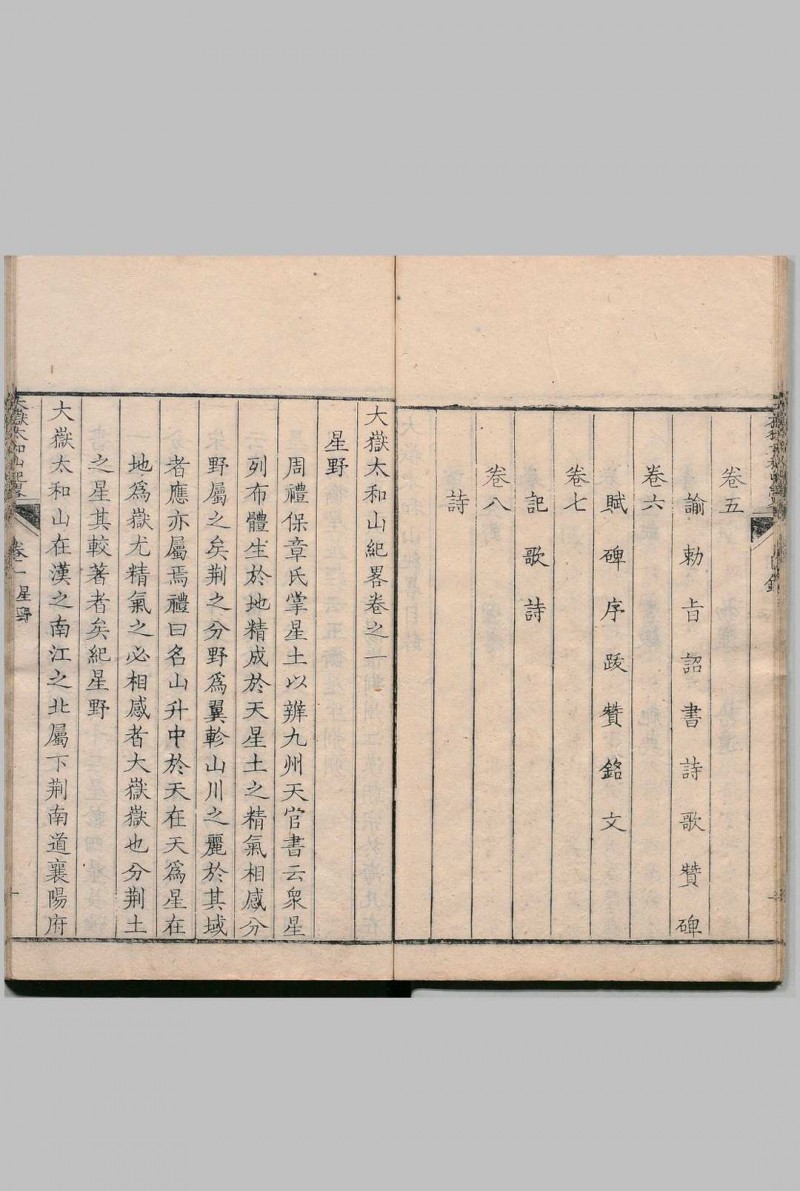 卷五
諭勅旨詔書詩歌贊碑
卷六
賦碑序跋贊銘文
卷七
記歌詩
卷八
詩
大嶽太和山紀畧卷之一
星野
周禮保章氏掌星土以辨九州天官書云衆星
列布體生於地精成於天星土之精氣相感分
野屬之矣荆之分野爲翼軫山川之麗於其域
者應亦屬焉禮曰名山升中於天在天爲星在
地爲嶽尤精氣之必相感者大嶽嶽也分荆土
之星其較著者矣紀星野
大嶽太和山在漢之南江之北屬下荆南道襄陽府
大嶽太和山紀畧
卷一
星野